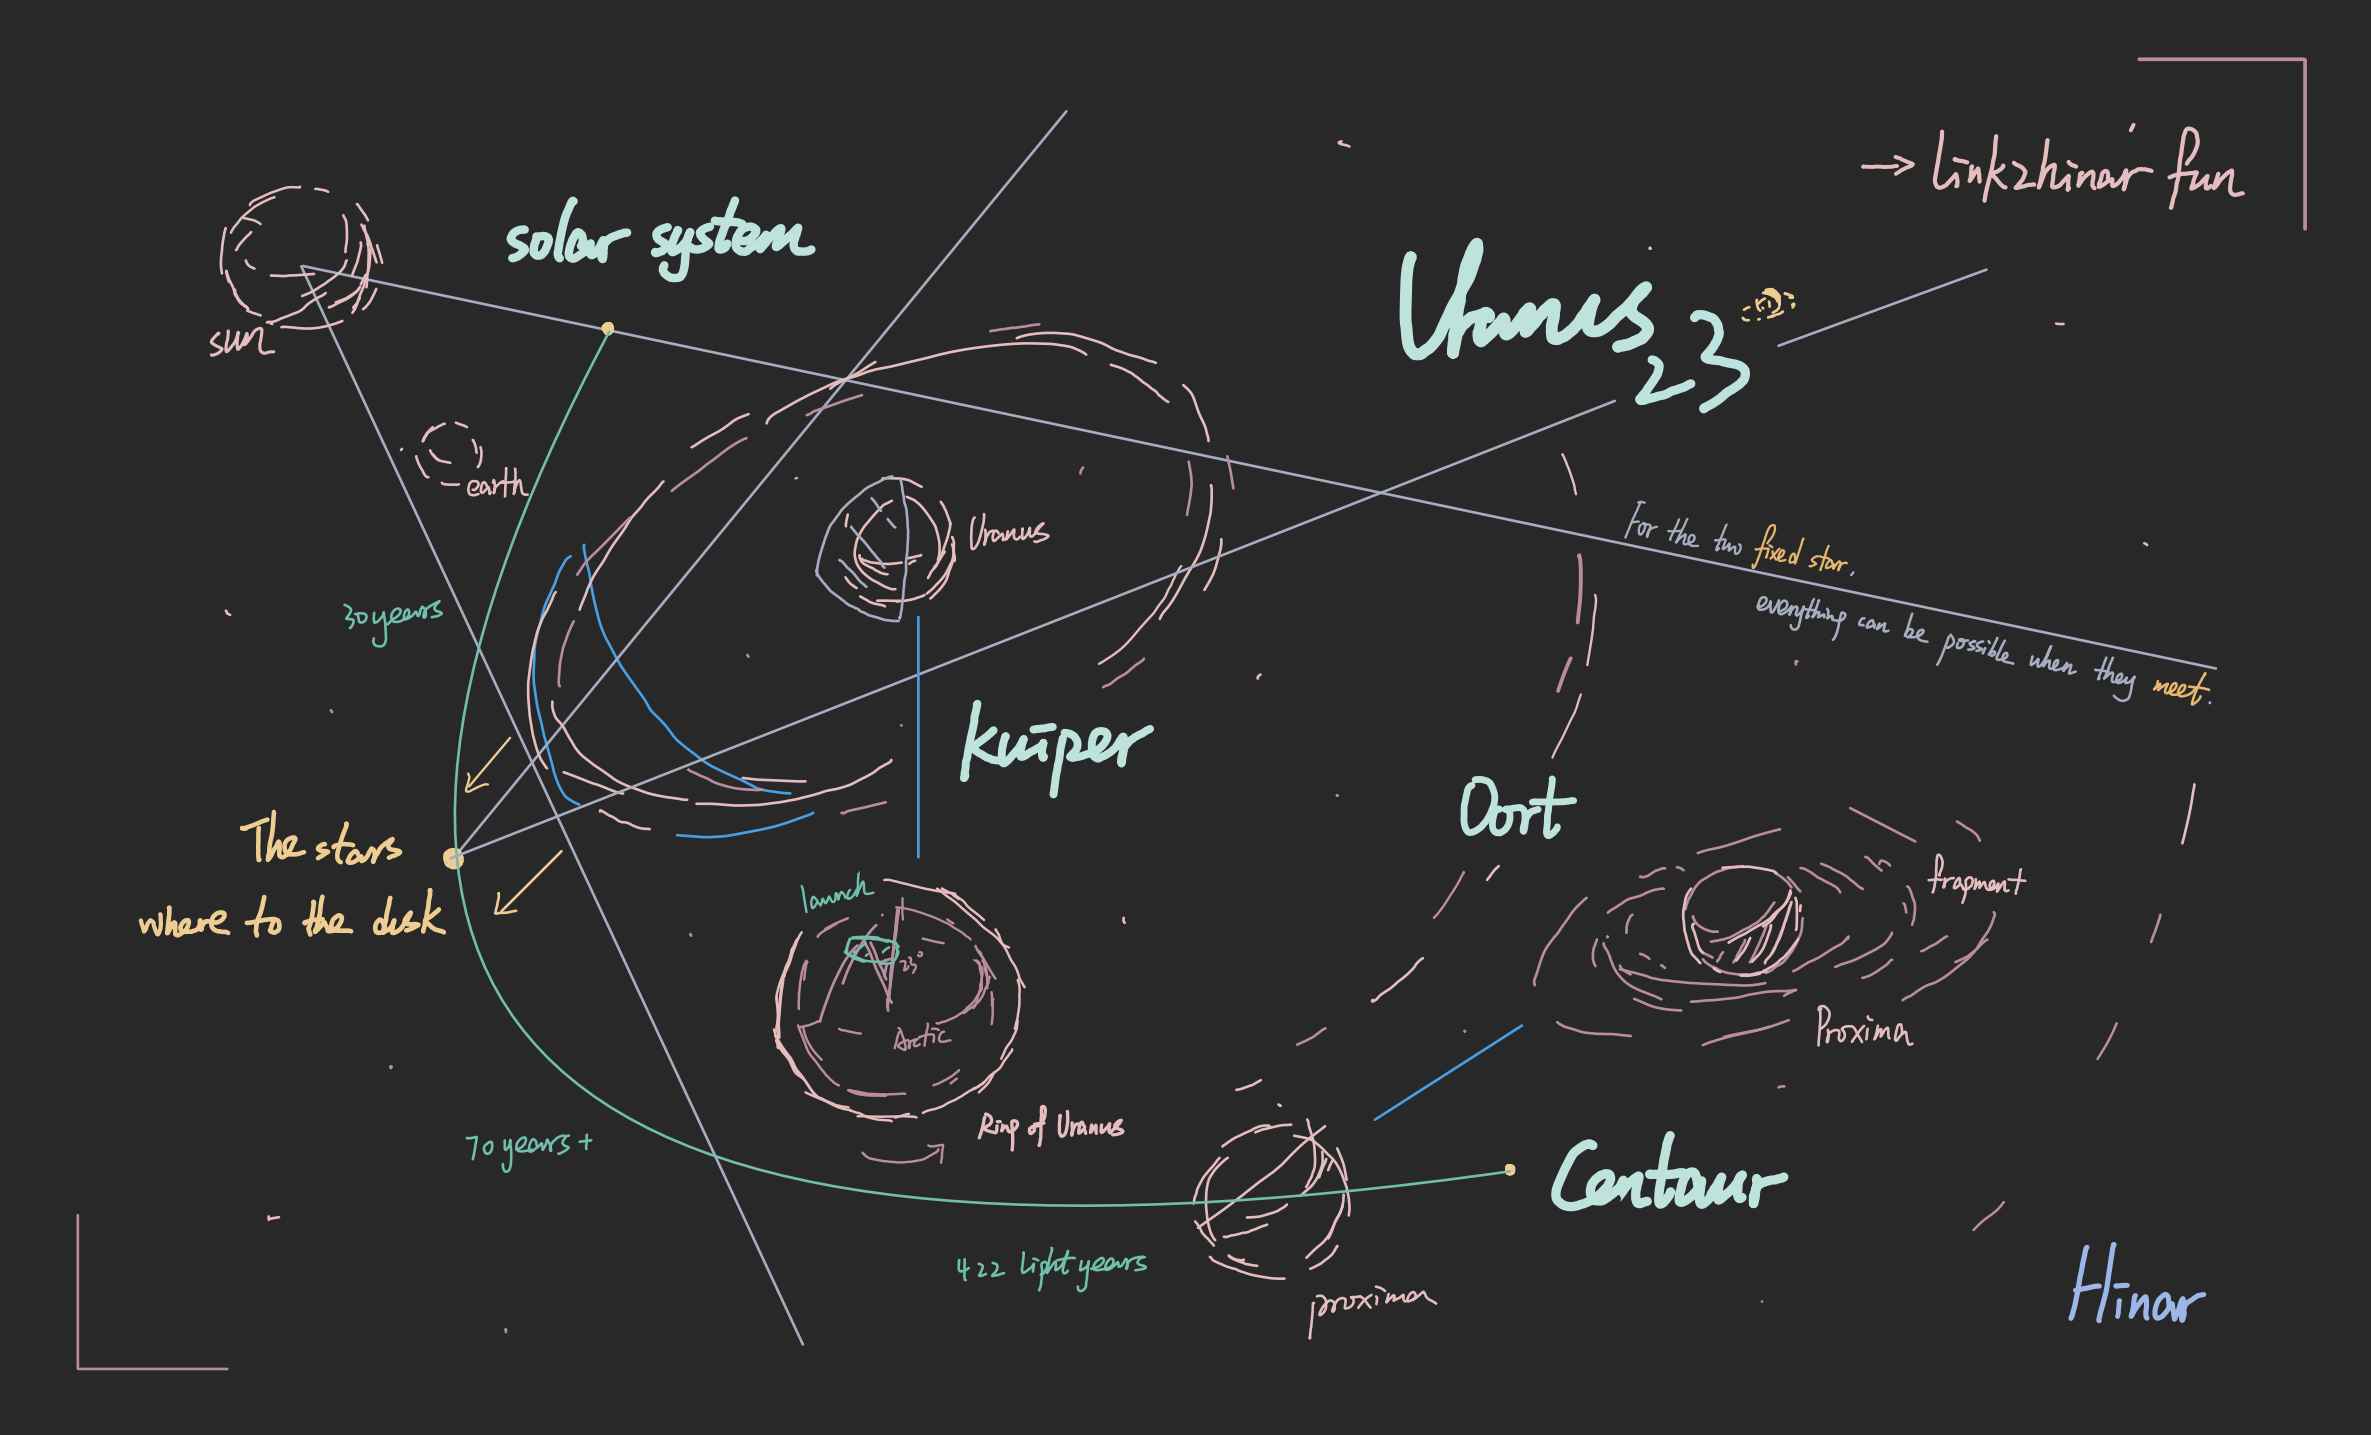 → linkzhinar fun
solar system
Uranus 23
sun
earth
Uranus
For the two fixed star.
everything can be possible when they meet.
30years
Kuiper
Oort
The stars
where to the dusk
launch
23°
Arctic
fragment
Proxima
Ring of Uranus
70years+
Centaur
422 light years
proxima
Hinar